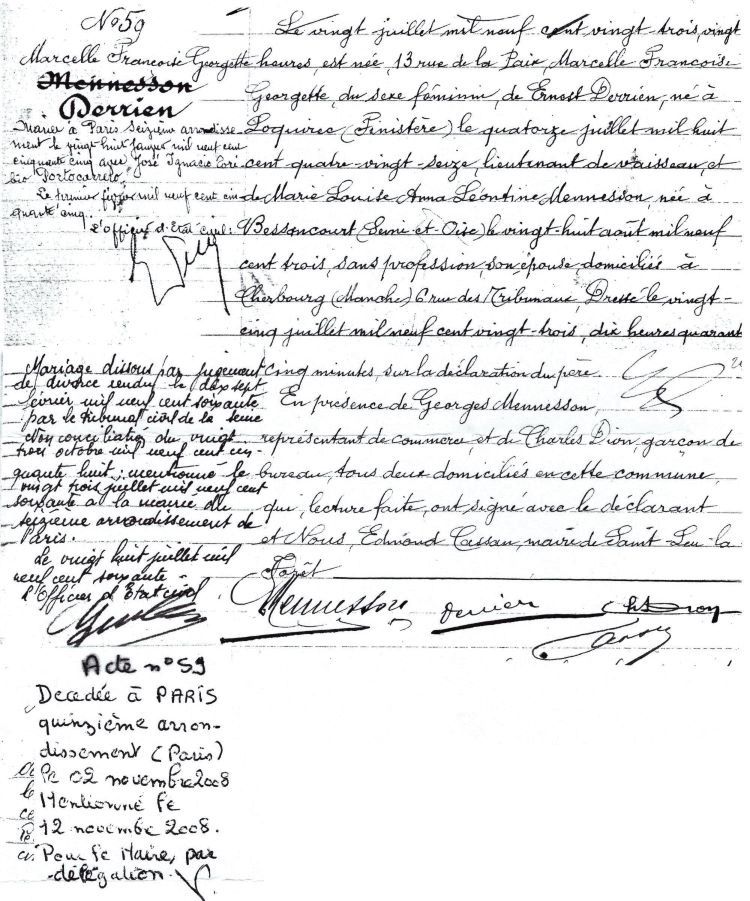 No 59
Marcelle Francoise Georgette
Mennesson
Derrien
Mariée à Paris seizième arrondisse-
ment le vingt huit janvier mil neuf cent
cinquante cinq avec José Ignacio Tori
bio Portocarrero.
Le premier février mil neuf cent cin-
quante cinq.
L'officier d'Etat civil:
Le vingt juillet mil neuf cent vingt trois, vingt
heures, est née, 13 rue de la Paix, Marcelle Francoise
Georgette, du sexe féminin, de Ernest Derrien, né à
Loquirec (Finistère) le quatorze juillet mil huit
cent quatre-vingt-seize, lieutenant de vaisseau, et
de Marie Louise Anna Léontine Mennesson, née à
Bessoncourt (Seine-et-Oise) le vingt-huit août mil neuf
cent trois, sans profession, son épouse, domiciliés à
Cherbourg (Manche) 6 rue des Tribunaux, Dressé le vingt-
cinq juillet mil neuf cent vingt-trois, dix heures quarant
cinq minutes, sur la déclaration du père.
En présence de Georges Mennesson,
représentant de commerce, et de Charles Dion, garçon de
bureau, tous deux domiciliés en cette commune,
qui, lecture faite, ont signé avec le déclarant
et Nous, Edmond Cassan, maire de Saint-Leu-la
Forêt
Mennesson Derrien Ch Dion
Mariage dissous par jugement
de divorce rendu le dix sept
février mil neuf cent soixante
par le tribunal civil de la Seine
d'non conciliation du vingt
trois octobre mil neuf cent cin-
quante huit; mentionné le
vingt trois juillet mil neuf cent
soixante à la mairie du
seizième arrondissement de
Paris.
Le vingt huit juillet mil
neuf cent soixante -
l'Officier d'Etat civil
Acte n° 59
Decedée à PARIS
quinzième arron-
dissement (Paris)
le 02 novembre 2008
Mentionné le
12 novembre 2008.
Pour le Maire, par
délégation.